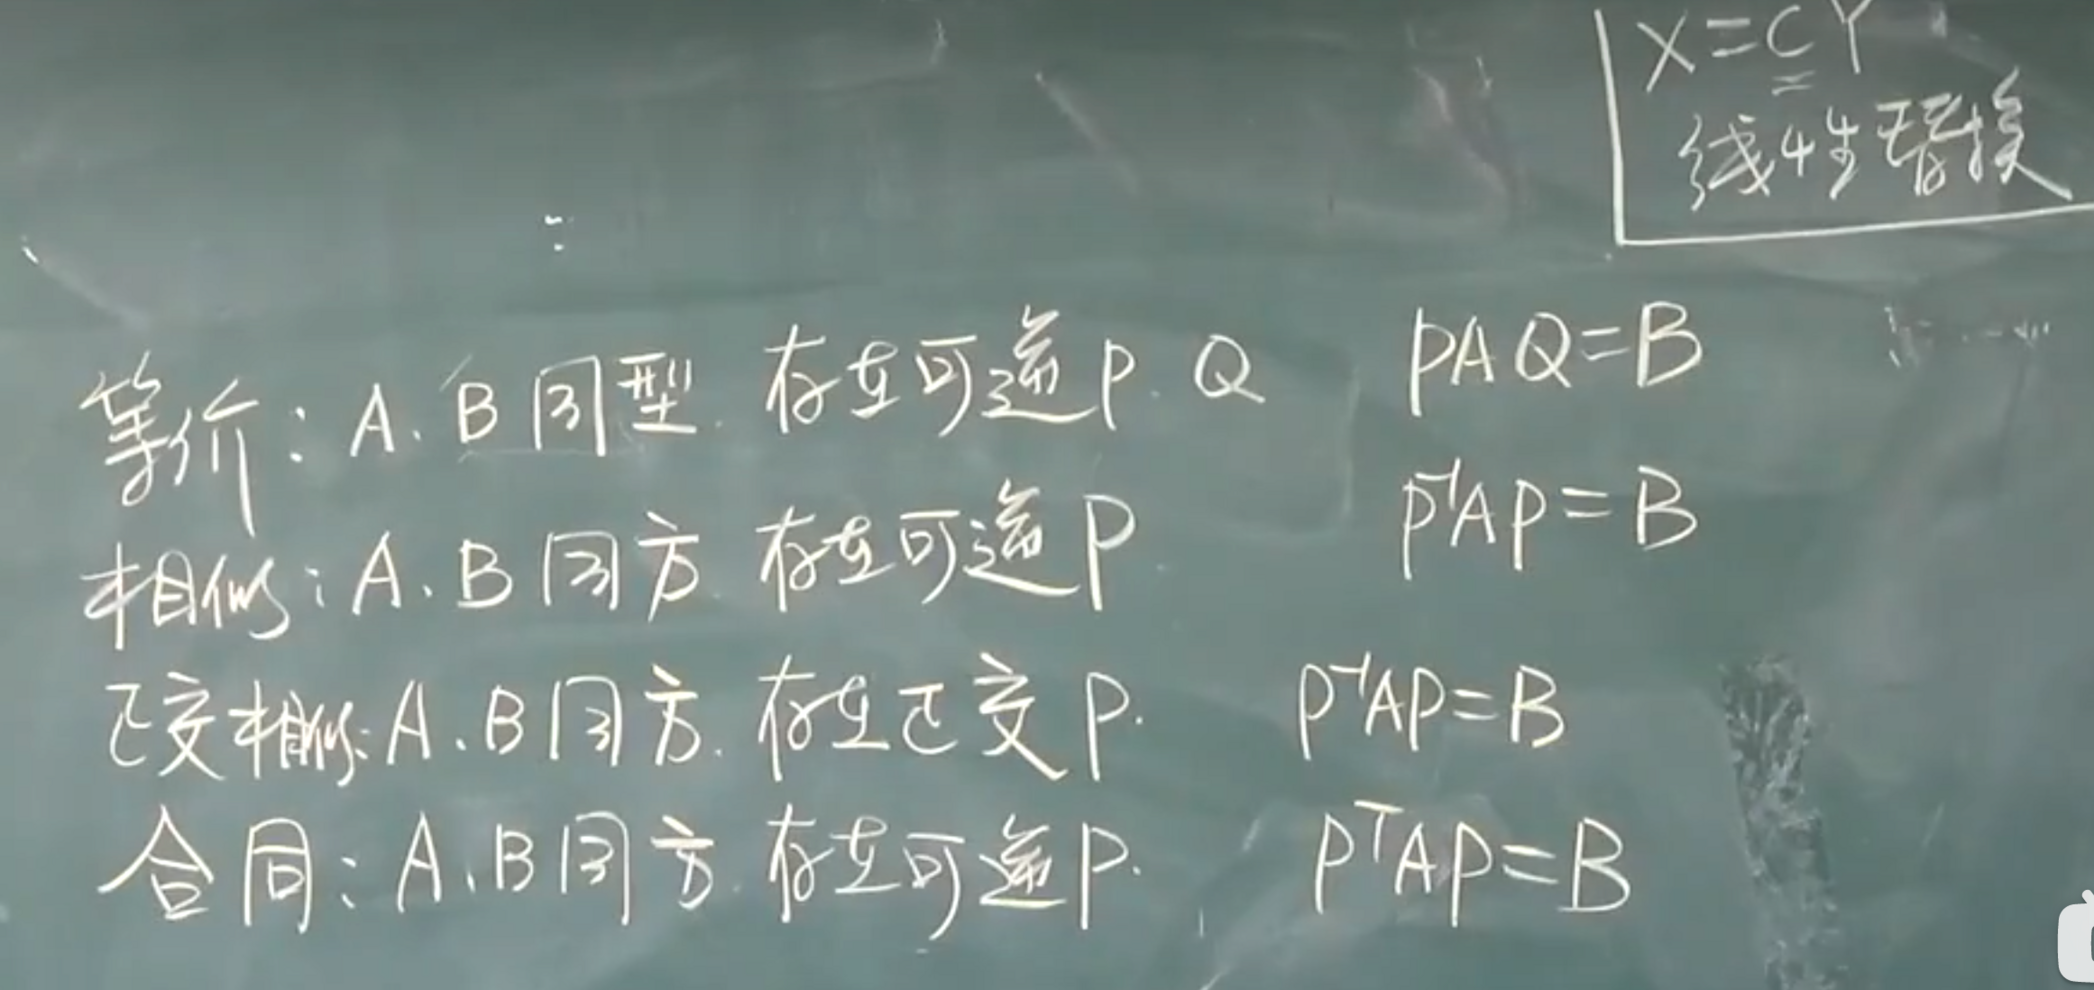 X=CY
线性替换
等价:A.B同型.存在可逆P.Q PAQ=B
相似:A.B同方.存在可逆P P⁻¹AP=B
正交相似:A.B同方.存在正交P. P⁻¹AP=B
合同:A.B同方.存在可逆P. PᵀAP=B